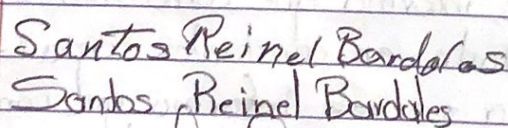 Santos Reinel Bardalas
Santos Reinel Bardales